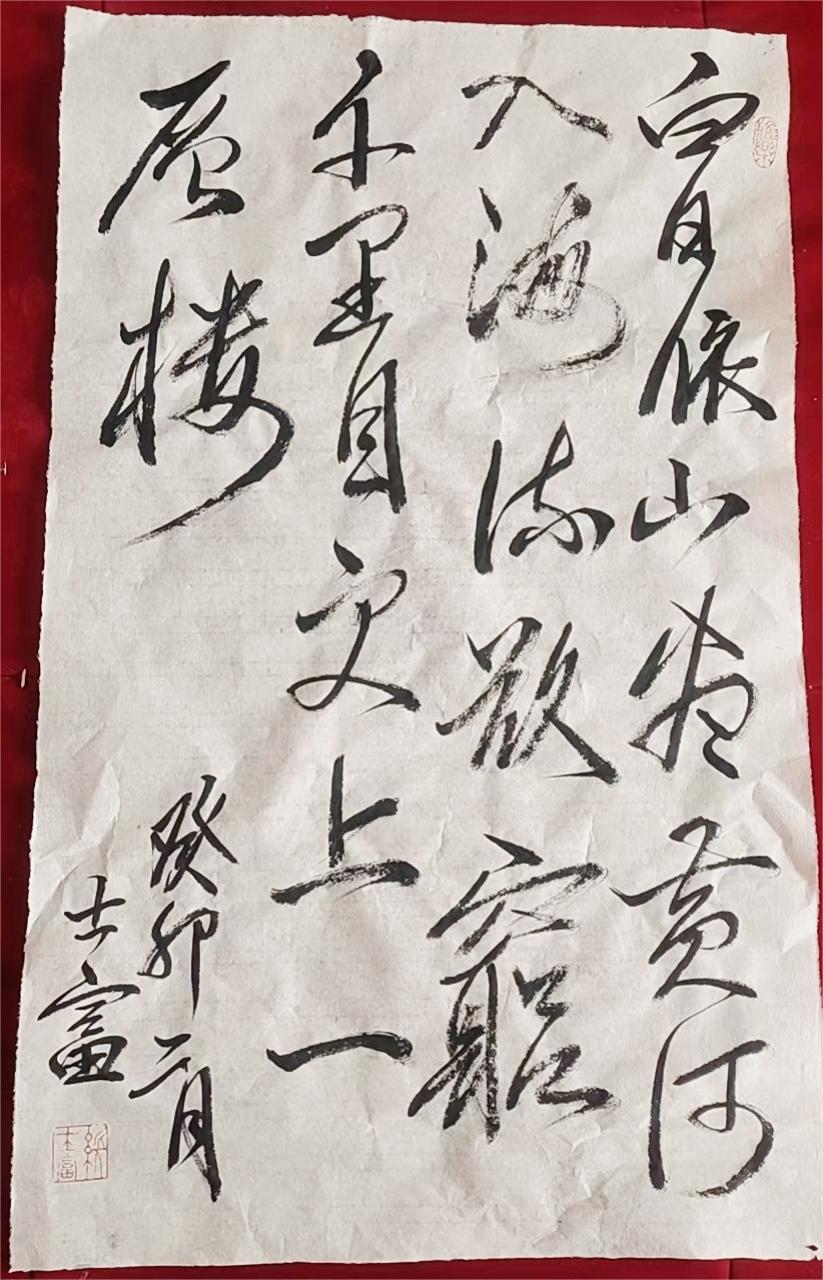 白日依山尽黄河
入海流欲窮
千里目更上一
层楼
癸卯二月
士富